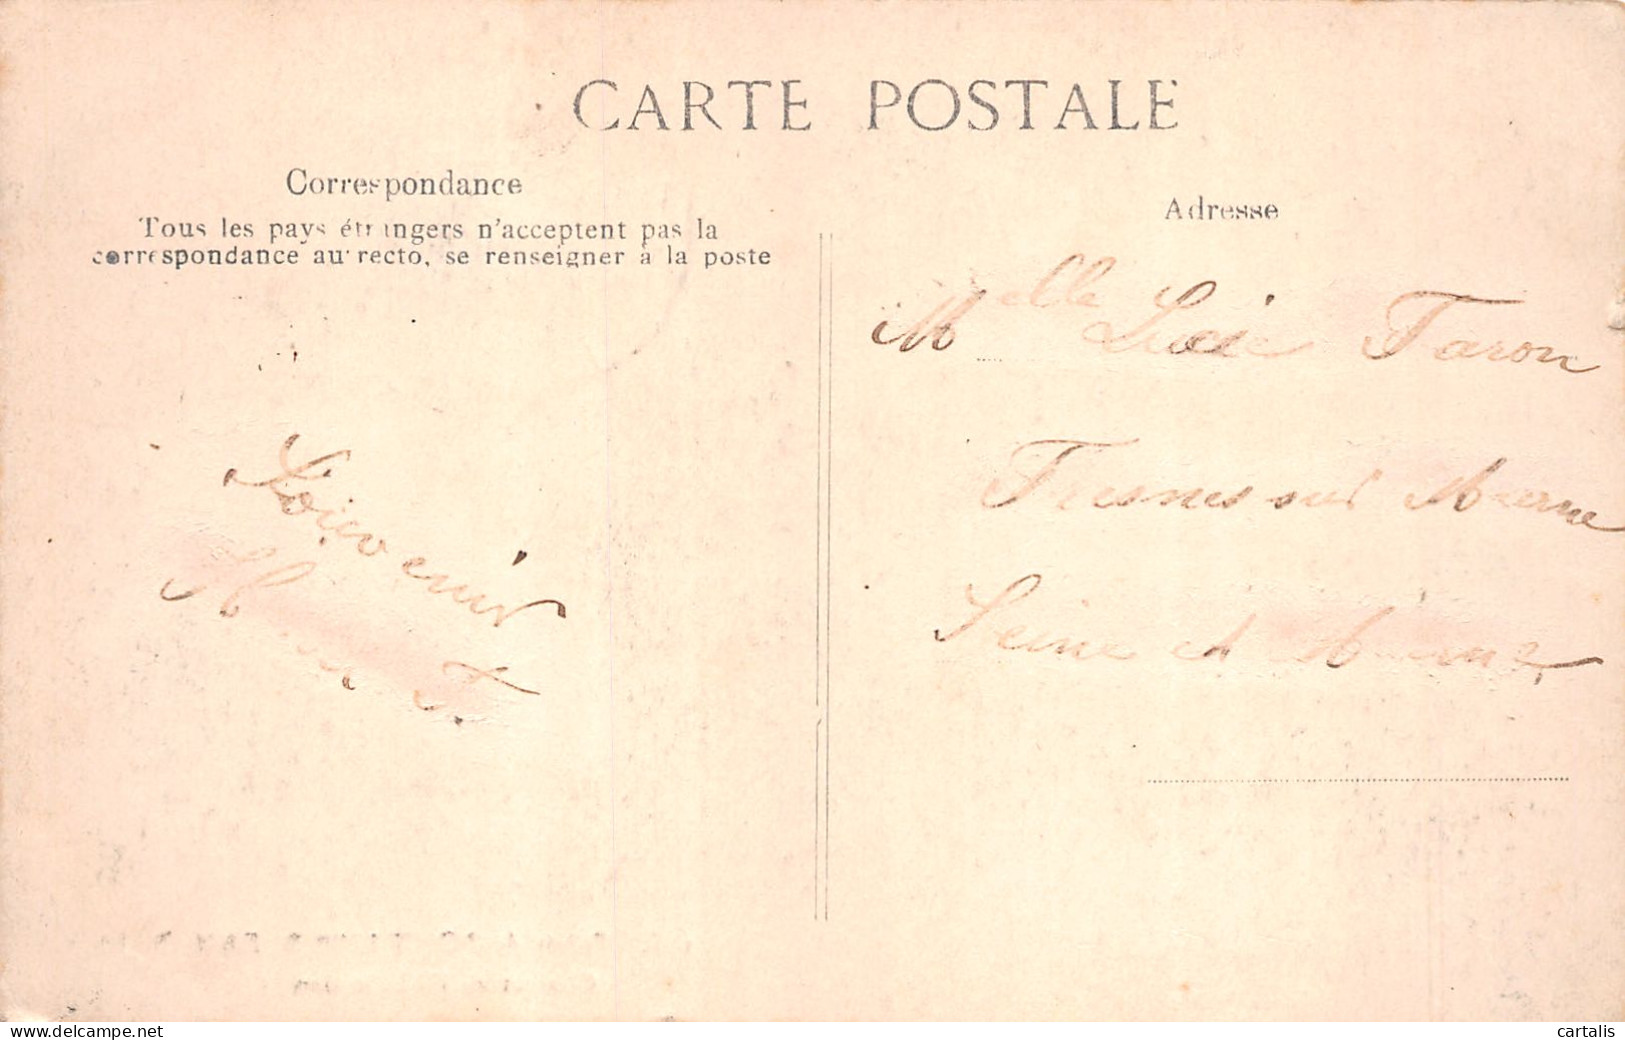 CARTE POSTALE
Correspondance
Tous les pays étrangers n'acceptent pas la
correspondance au recto, se renseigner à la poste
Adresse
Melle Lucie Faron
Fresnes sur Marne
Seine et Marne
Souvenir
F.
cartalis